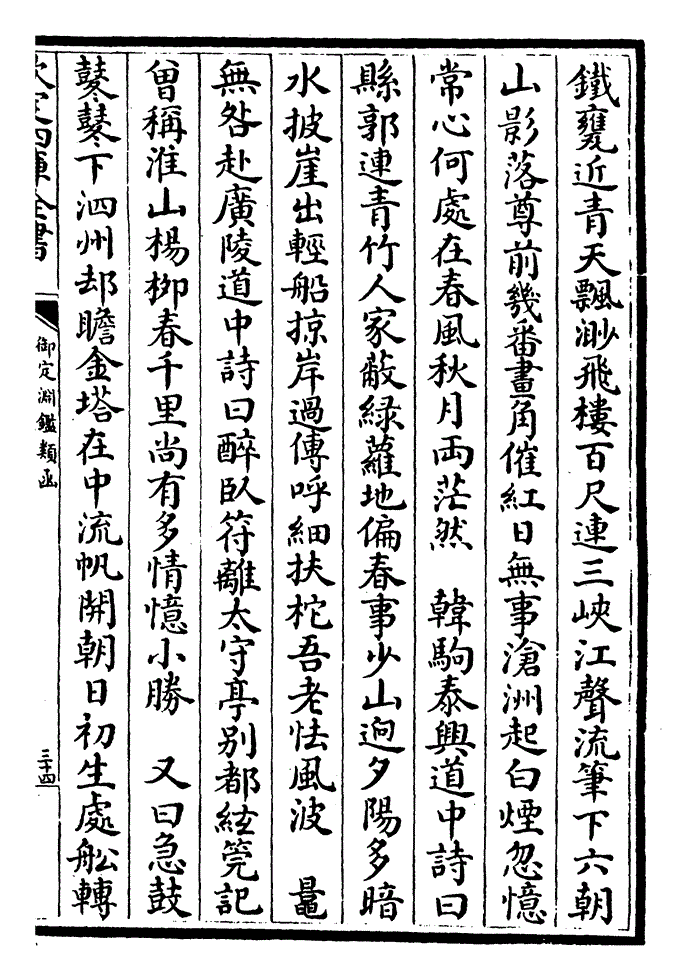 鐵甕近青天飄渺飛樓百尺連三峽江聲流筆下六朝
山影落尊前幾番畫角催紅日無事滄洲起白煙忽憶
常心何處在春風秋月兩茫然　韓駒泰興道中詩曰
縣郭連青竹人家蔽緑蘿地偏春事少山迥夕陽多暗
水披崖出輕船掠岸過傳呼細扶柁吾老怯風波　鼂
無咎赴廣陵道中詩曰醉臥符離太守亭别都絃筦記
曾稱淮山楊栁春千里尚有多情憶小勝　又曰急鼓
鼕鼕下泗州却瞻金塔在中流帆開朝日初生處舩轉
欽定四庫全書
御定淵鑑類函
三十四